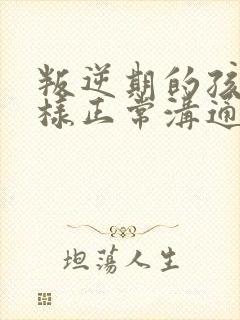 叛逆期的孩
樣正常溝通
坦蕩人生